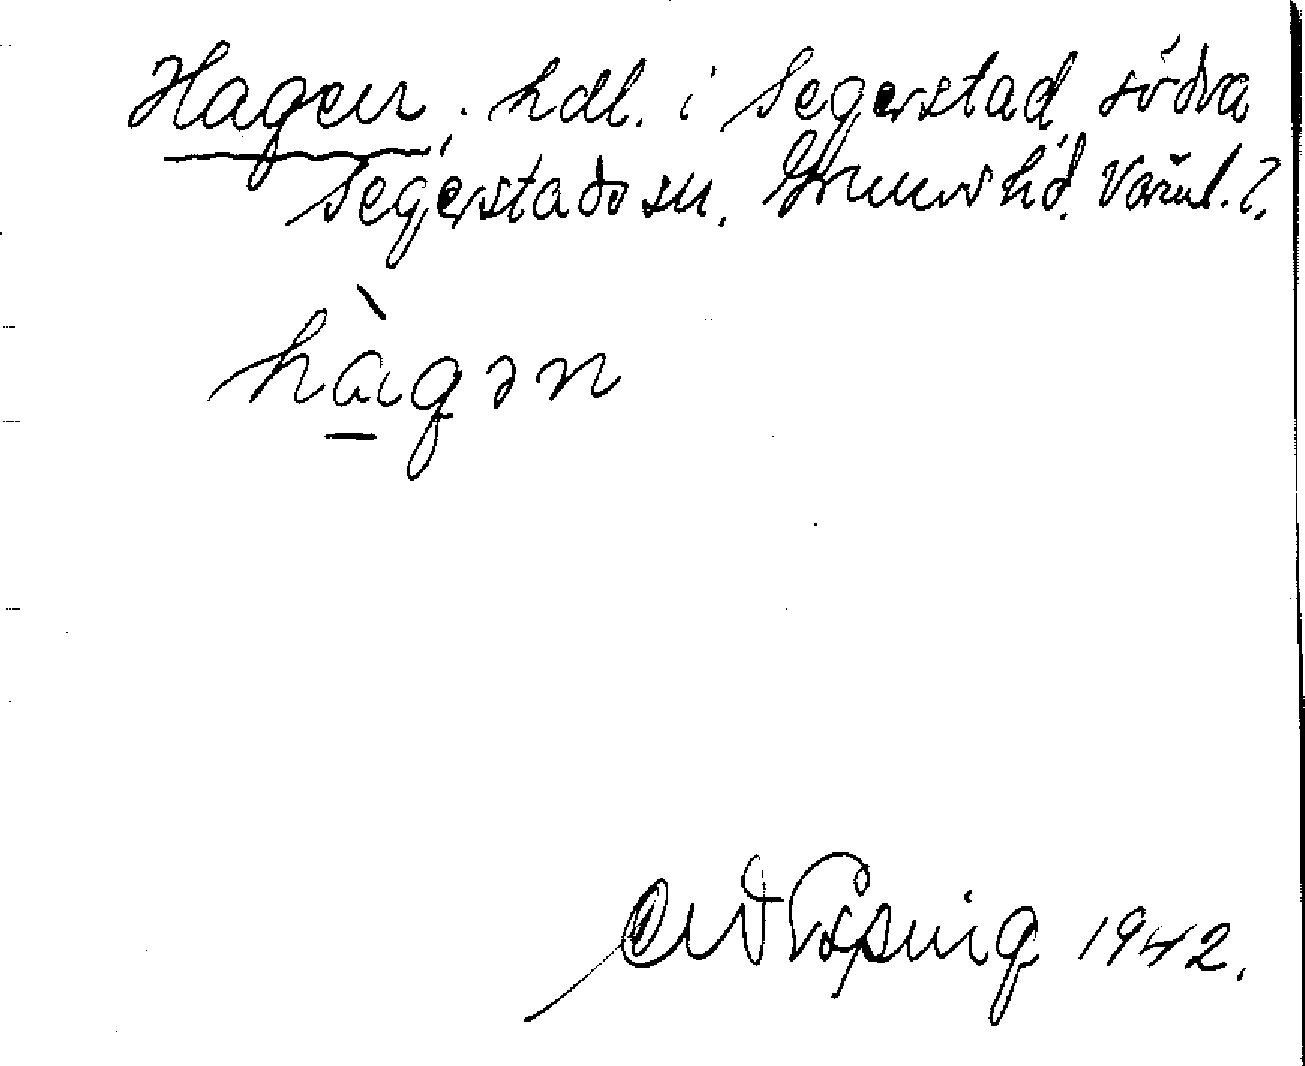 Hagen, hdl. i Segerstad, södra
Segerstads sn. Grums hd. Värml.
hàgən
1942.